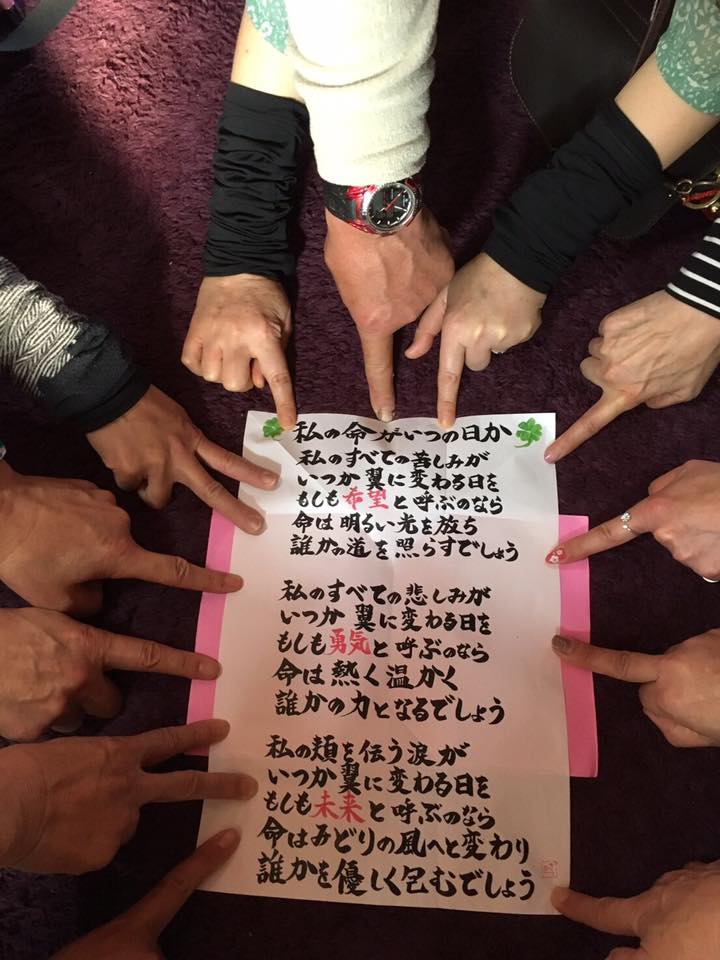 私の命がいつの日か
私のすべての苦しみが
いつか翼に変わる日を
もしも希望と呼ぶのなら
命は明るい光を放ち
誰かの道を照らすでしょう
私のすべての悲しみが
いつか翼に変わる日を
もしも勇気と呼ぶのなら
命は熱く温かく
誰かの力となるでしょう
私の頬を伝う涙が
いつか翼に変わる日を
もしも未来と呼ぶのなら
命はみどりの風へと変わり
誰かを優しく包むでしょう